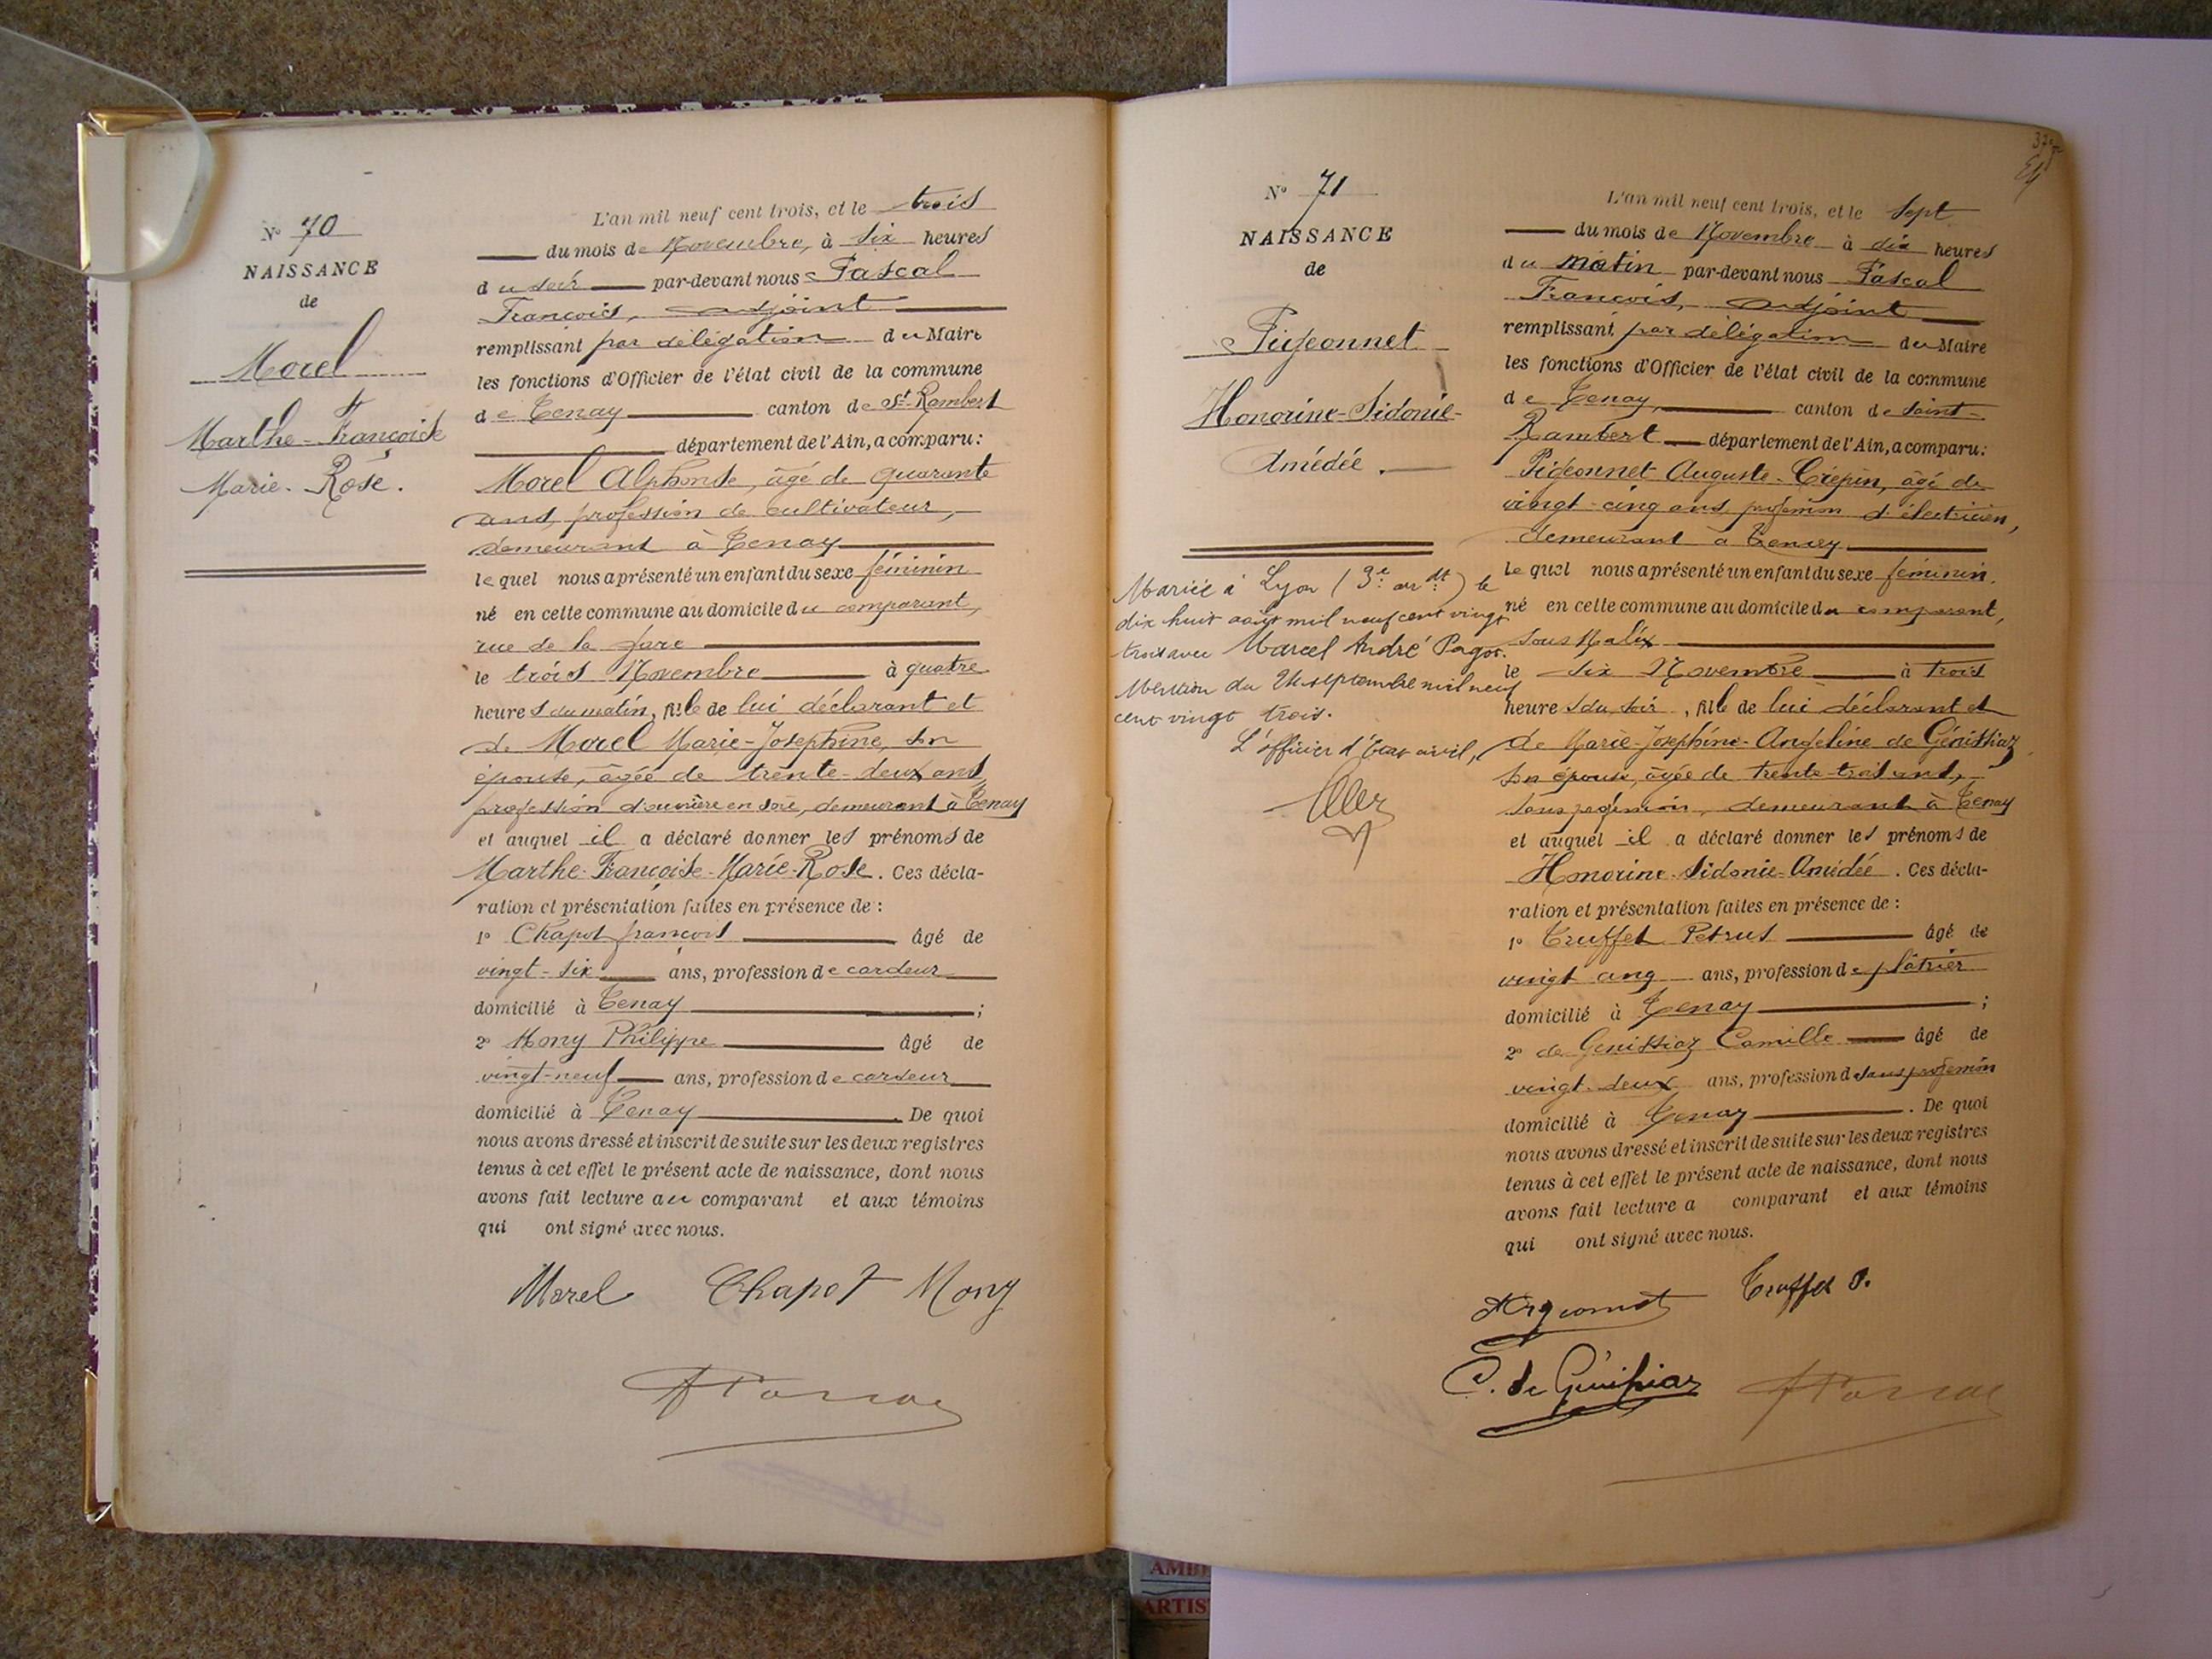 N° 70
NAISSANCE
de
Morel
Marthe-Françoise
Marie-Rose.
L'an mil neuf cent trois, et le trois
du mois de Novembre, à six heures
du soir par-devant nous Pascal
François, adjoint
remplissant par délégation du Maire
les fonctions d'Officier de l'état civil de la commune
de Tenay canton de St-Rambert
département de l'Ain, a comparu:
Morel Alphonse, âgé de quarante
ans, profession de cultivateur,
demeurant à Tenay
lequel nous a présenté un enfant du sexe féminin
né en cette commune au domicile du comparant,
rue de la gare
le trois Novembre à quatre
heures du matin, fille de lui déclarant et
de Morel Marie-Josephine, son
épouse, âgée de trente-deux ans,
profession d'ouvrière en soie, demeurant à Tenay
et auquel il a déclaré donner les prénoms de
Marthe-Françoise-Marie-Rose. Ces décla-
ration et présentation faites en présence de:
1° Chapot françois âgé de
vingt-six ans, profession de cardeur
domicilié à Tenay ;
2° Mony Philippe âgé de
vingt-neuf ans, profession de cardeur
domicilié à Tenay. De quoi
nous avons dressé et inscrit de suite sur les deux registres
tenus à cet effet le présent acte de naissance, dont nous
avons fait lecture au comparant et aux témoins
qui ont signé avec nous.
Morel Chapot Mony
N° 71
NAISSANCE
de
Pigeonnet
Honorine-Sidonie-
Amédée.
Mariée à Lyon (3e arrdt) le
dix huit août mil neuf cent vingt
trois avec Marcel André Pagot.
Mention du 24 septembre mil neuf
cent vingt trois.
L'officier d'état civil,
37
L'an mil neuf cent trois, et le sept
du mois de Novembre à dix heures
du matin par-devant nous Pascal
François, adjoint
remplissant par délégation du Maire
les fonctions d'Officier de l'état civil de la commune
de Tenay, canton de Saint-
Rambert département de l'Ain, a comparu:
Pigeonnet Auguste-Crépin, âgé de
vingt-cinq ans, profession d'électricien,
demeurant à Tenay
lequel nous a présenté un enfant du sexe féminin,
né en cette commune au domicile du comparant,
sous Malix
le six Novembre à trois
heures du soir, fille de lui déclarant et
de Marie-Josephine-Angéline de Génissiaz
son épouse, âgée de trente-trois ans,
sans profession, demeurant à Tenay
et auquel il a déclaré donner les prénoms de
Honorine-Sidonie-Amédée. Ces décla-
ration et présentation faites en présence de:
1° Truffet Petrus âgé de
vingt cinq ans, profession de plâtrier
domicilié à Tenay ;
2° de Genissiaz Camille âgé de
vingt-deux ans, profession d sans profession
domicilié à Tenay. De quoi
nous avons dressé et inscrit de suite sur les deux registres
tenus à cet effet le présent acte de naissance, dont nous
avons fait lecture a comparant et aux témoins
qui ont signé avec nous.
Truffet P.
C. de Génissiaz
AMBI
ARTIS